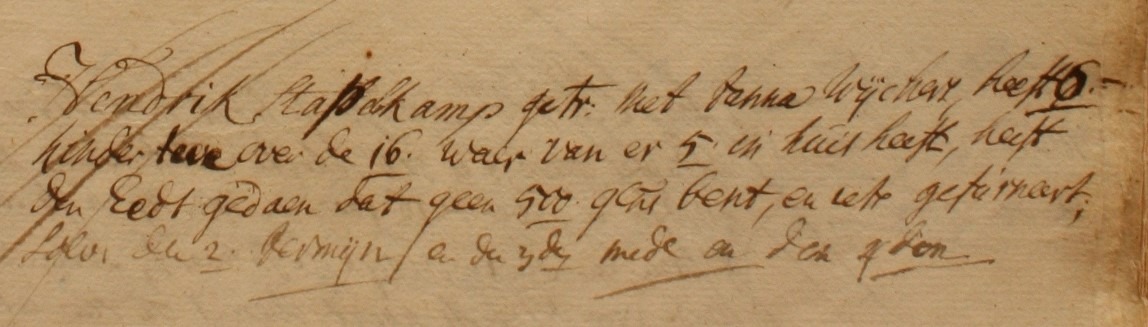 Hendrik Stapelkamp getr. met Janna Wÿchers, heeft 6.-
kinder twe over de 16. waer van er 5 in huis heeft, heeft
den Eedt gedaen dat geen 500 gls bent, en iets gefurneert;
solvi den 2. Termijn en den 3den mede en den 4den